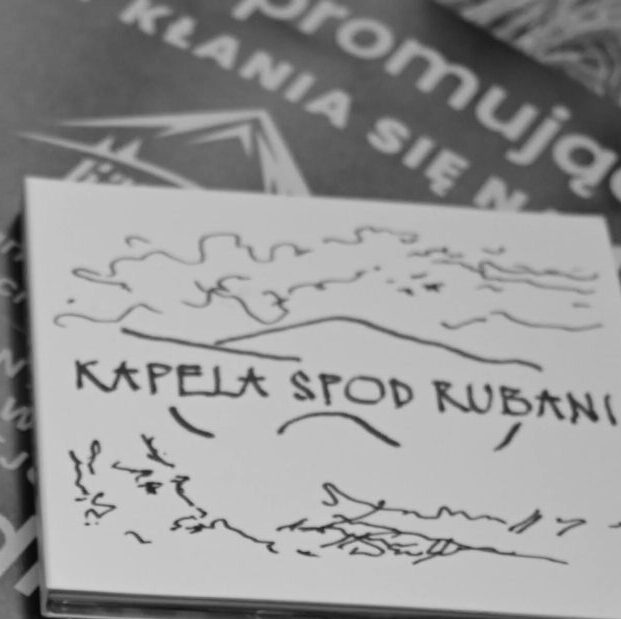 promując
KŁANIA SIĘ NA
KAPELA SPOD RUBANI